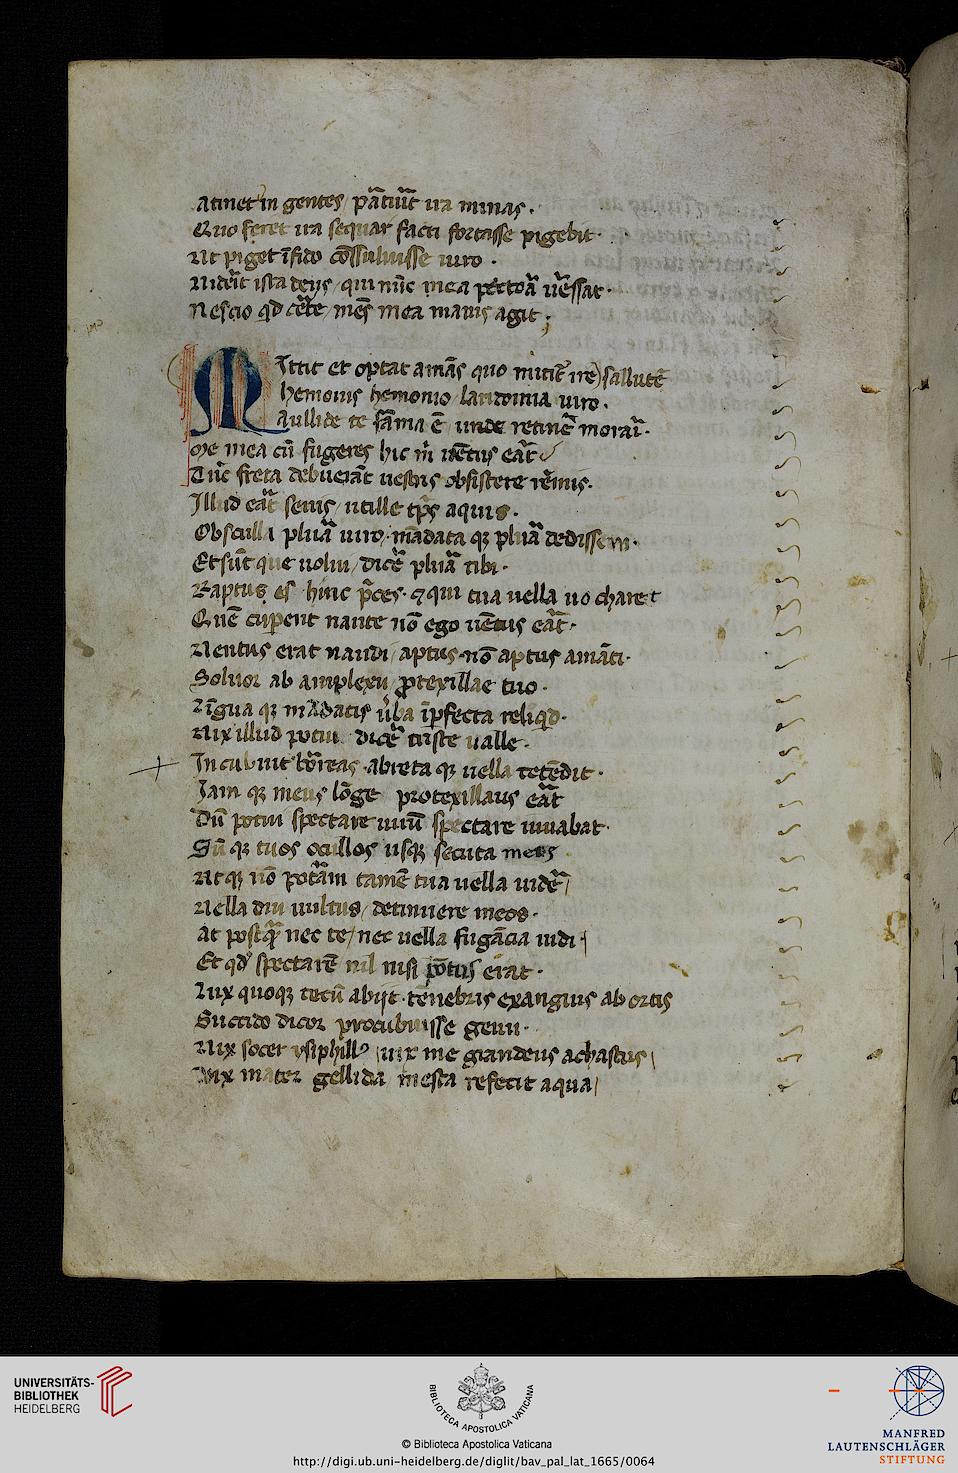 Atinet in gentes pãtiũt ira minas.
Quo feret ira sequar facti fortasse pigebit.
Ut piget ĩfido cõsuluisse uiro.
Uiderit ista deus, qui nũc mea pectora uersat.
Nescio qd certe, mẽs mea maius agit;
Mittit et optat amãs quo mitit ire sallutẽ
hemonis hemonio laudomia uiro.
Aullide te fãma ẽ uento retinẽte morari.
Me mea cũ fugeres hic m uẽtus erat
Tũc freta debuerãt uestris obsistere remis.
Illud erat seuis utille tp̃s aquis.
Obscula plura uiro, mãdata qz plura dedissem.
Et sũt que uolui dicere plura tibi.
Raptus es hinc p̃ceps. & qui tua uella uocharet
Quẽ cuperent naute nõ ego uẽtus erat.
Uentus erat nauti aptus. nõ aptus amãti.
Soluor ab amplexu protexillae tuo.
Lĩgua qz mãdatis uerba ĩperfecta reliqd.
Uix illud potui dicere triste ualle.
Incubuit boreas. abreta qz uella tetẽdit.
Jam qz meus lõge protexillaus erat
Dũ potui spectare uirũ spectare iuuabat.
Sũ qz tuos ocullos usqz secuta meis
Ut qz nõ poterã tamẽ tua uella uidere
Uella diu uultus, detinuere meos.
At postqz nec te nec uella fugãcia uidi
Et qd spectarẽ nil nisi põtus erat.
Lux quoqz tecũ abijt. tenebris exanguis abortis
Succiduo dicor procubuisse genu.
Uix socer ysiphillus uix me grandeus achastus
Uix mater gellida mesta refecit aqua
UNIVERSITÄTS-
BIBLIOTHEK
HEIDELBERG
BIBLIOTECA APOSTOLICA VATICANA
© Biblioteca Apostolica Vaticana
http://digi.ub.uni-heidelberg.de/diglit/bav_pal_lat_1665/0064
MANFRED
LAUTENSCHLÄGER
STIFTUNG